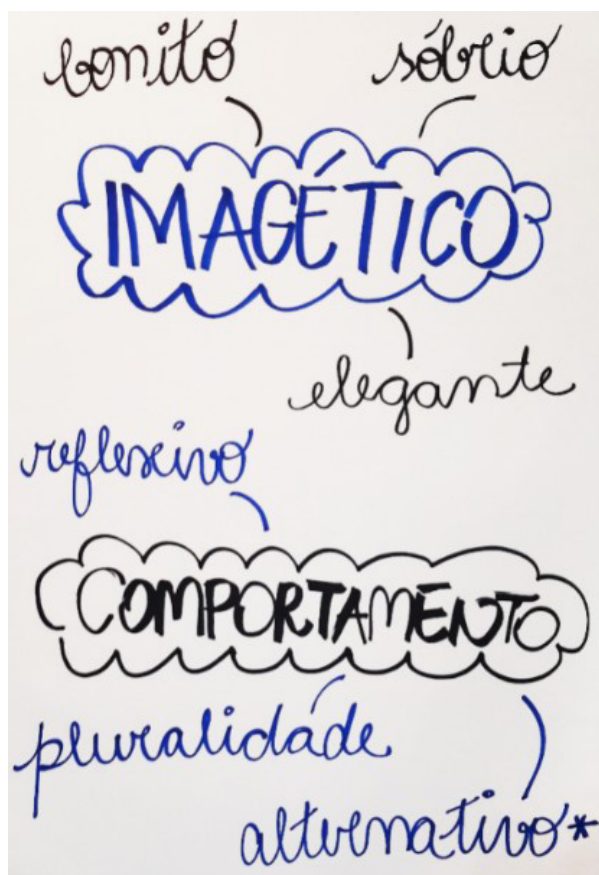 bonito sóbrio
IMAGÉTICO
elegante
reflexivo
COMPORTAMENTO
pluralidade
alternativo*